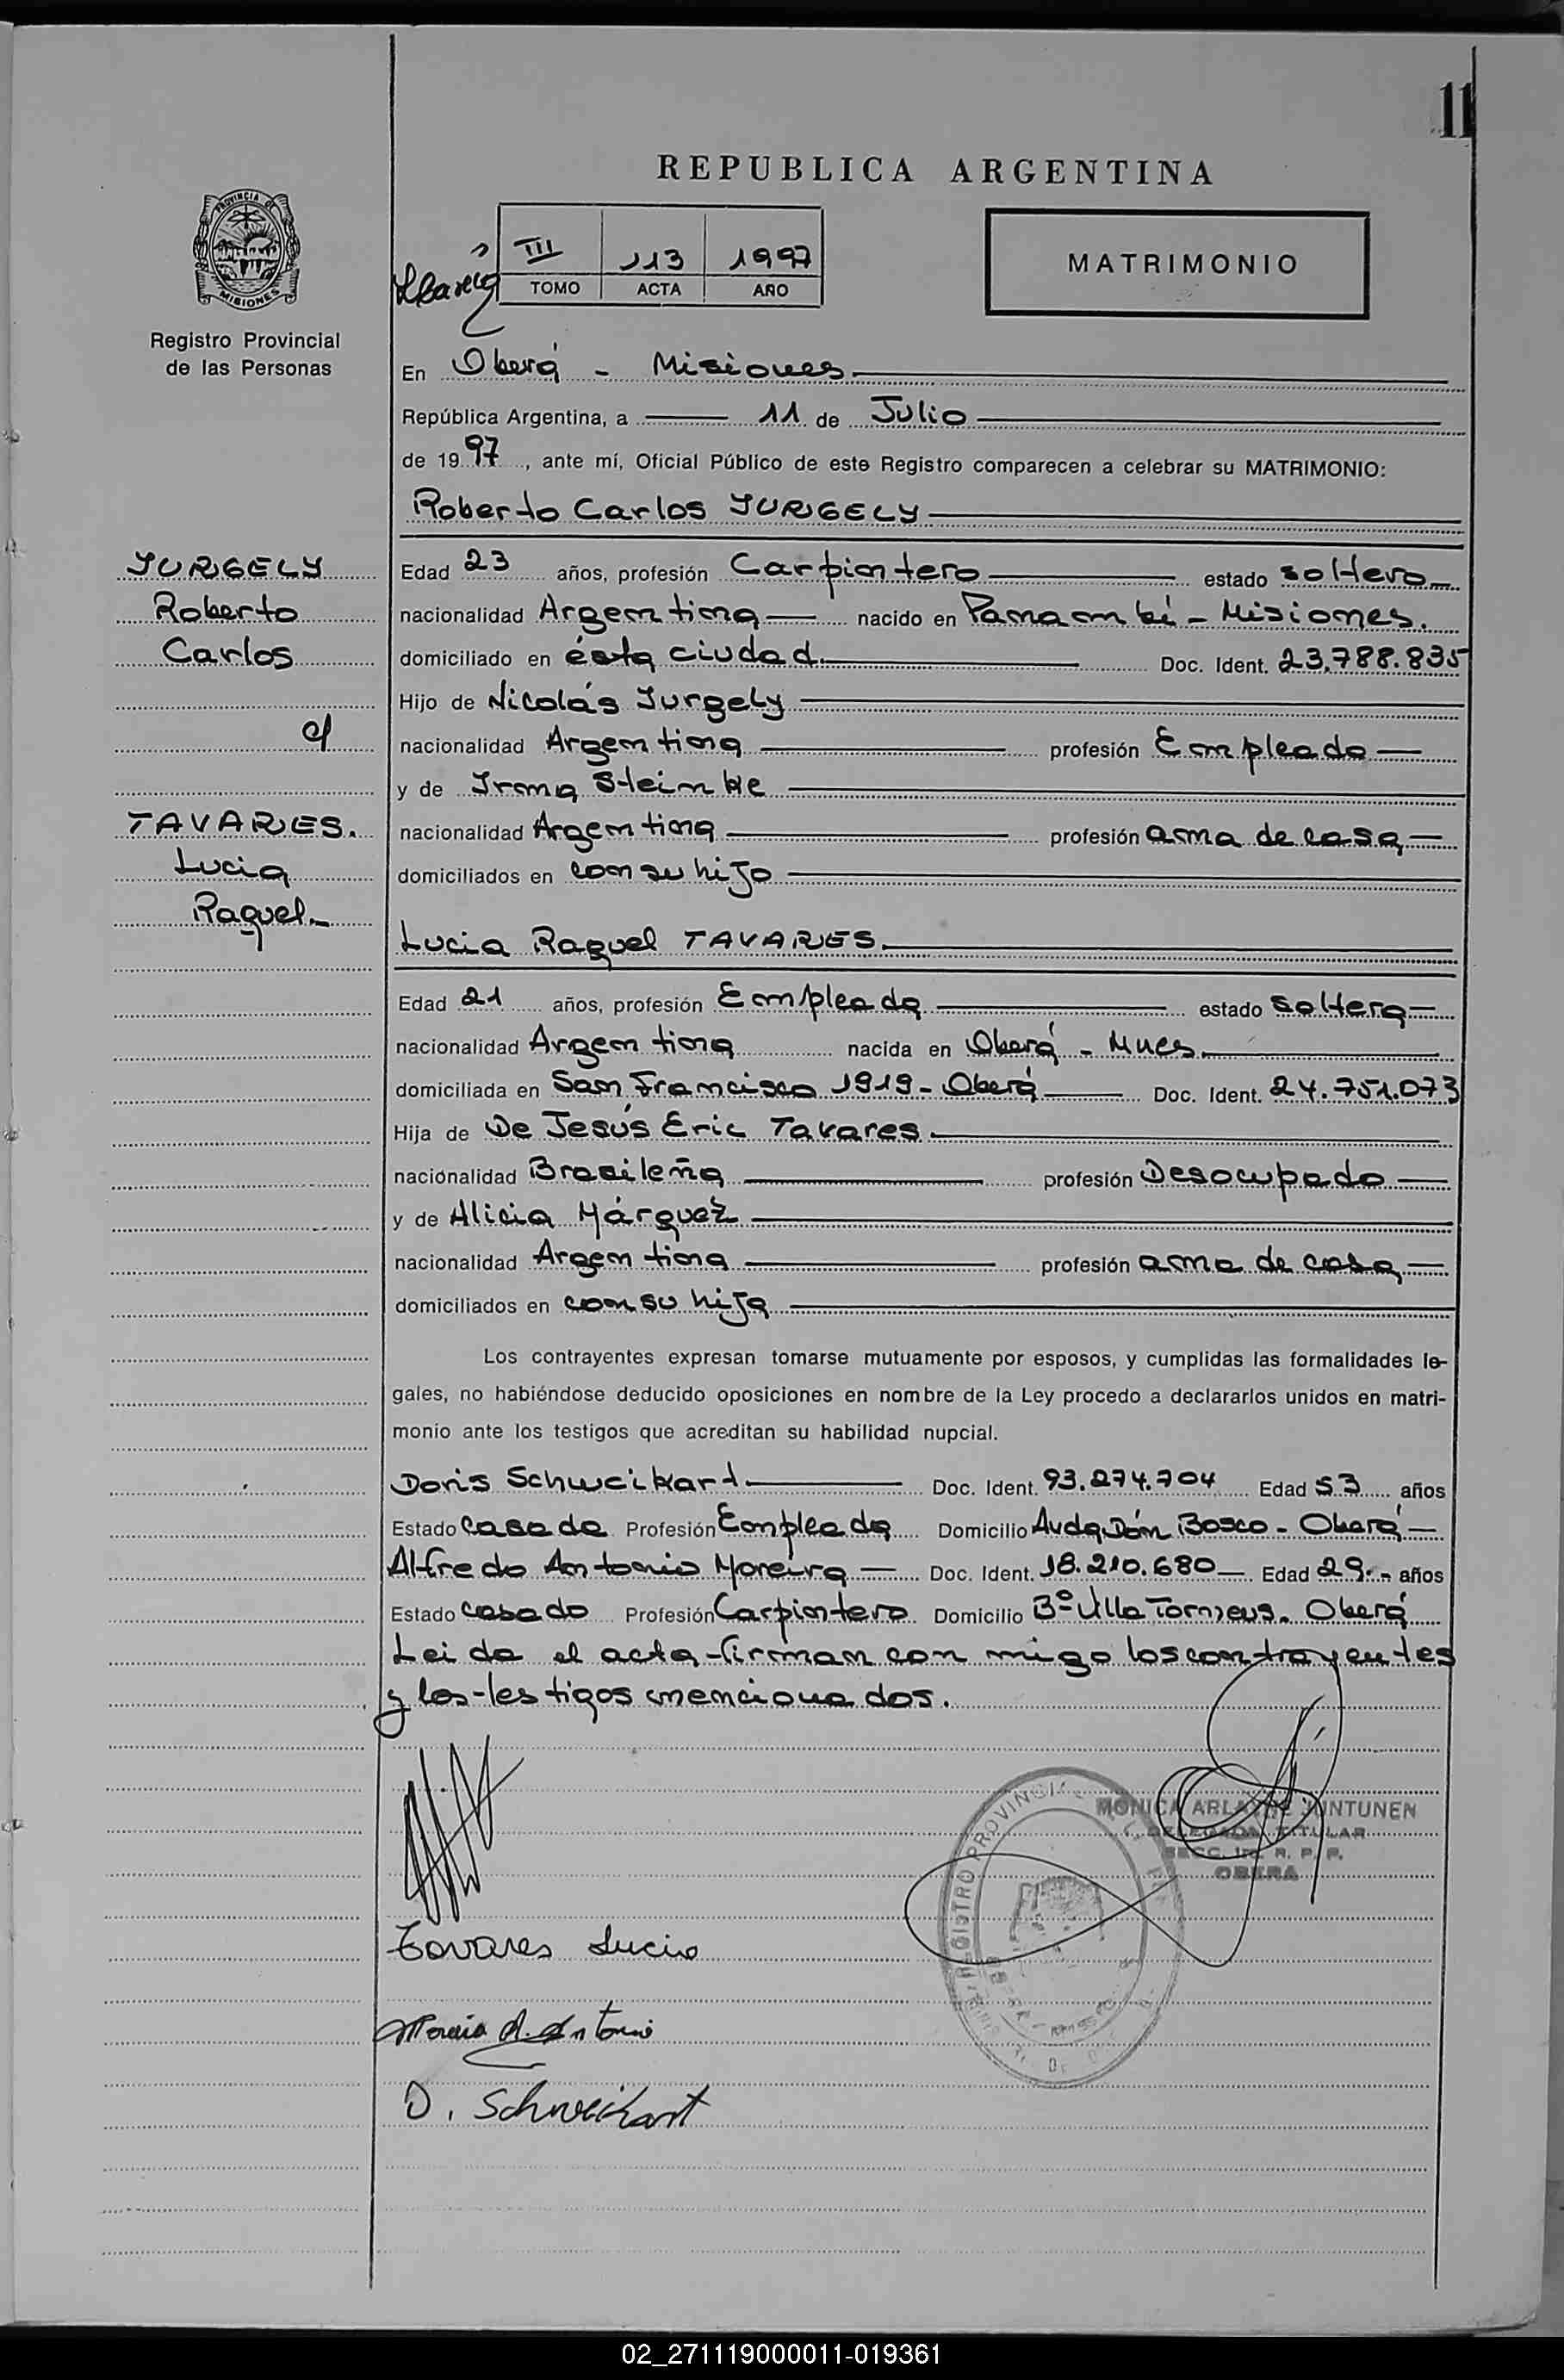 11
REPUBLICA ARGENTINA
PROVINCIA DE MISIONES
III 113 1997
TOMO ACTA AÑO
MATRIMONIO
Registro Provincial
de las Personas
En Oberá - Misiones
República Argentina, a 11 de Julio
de 1997, ante mí, Oficial Público de este Registro comparecen a celebrar su MATRIMONIO:
Roberto Carlos YURGELY
YURGELY
Roberto
Carlos
c/
TAVARES.
Lucia
Raquel.-
Edad 23 años, profesión Carpintero estado soltero
nacionalidad Argentina nacido en Panambí - Misiones.
domiciliado en ésta ciudad. Doc. Ident. 23.788.835
Hijo de Nicolás Yurgely
nacionalidad Argentina profesión Empleado
y de Irma Steinke
nacionalidad Argentina profesión ama de casa
domiciliados en con su hijo
Lucia Raquel TAVARES.
Edad 21 años, profesión Empleada estado soltera
nacionalidad Argentina nacida en Oberá - Mnes.
domiciliada en San Francisco 1919 - Oberá Doc. Ident. 24.751.073
Hija de De Jesús Eric Tavares
nacionalidad Brasileña profesión Desocupado
y de Alicia Márquez
nacionalidad Argentina profesión ama de casa
domiciliados en con su hija
Los contrayentes expresan tomarse mutuamente por esposos, y cumplidas las formalidades le-
gales, no habiéndose deducido oposiciones en nombre de la Ley procedo a declararlos unidos en matri-
monio ante los testigos que acreditan su habilidad nupcial.
Doris Schweikart Doc. Ident. 93.274.704 Edad 53 años
Estado casada Profesión Empleada Domicilio Avda Dón Bosco - Oberá
Alfredo Antonio Moreira Doc. Ident. 18.210.680 Edad 29.- años
Estado casado Profesión Carpintero Domicilio Bº Villa Oberá
Leida el acta firman con migo los contrayentes
y los testigos mencionados.
MONICA JUNTUNEN
DELEGADA TITULAR
SECC. 1ra. R. P. P.
OBERA
REGISTRO PROVINCIAL
Tavares Lucia
A. Antonio
D. Schweikart
02_271119000011-019361